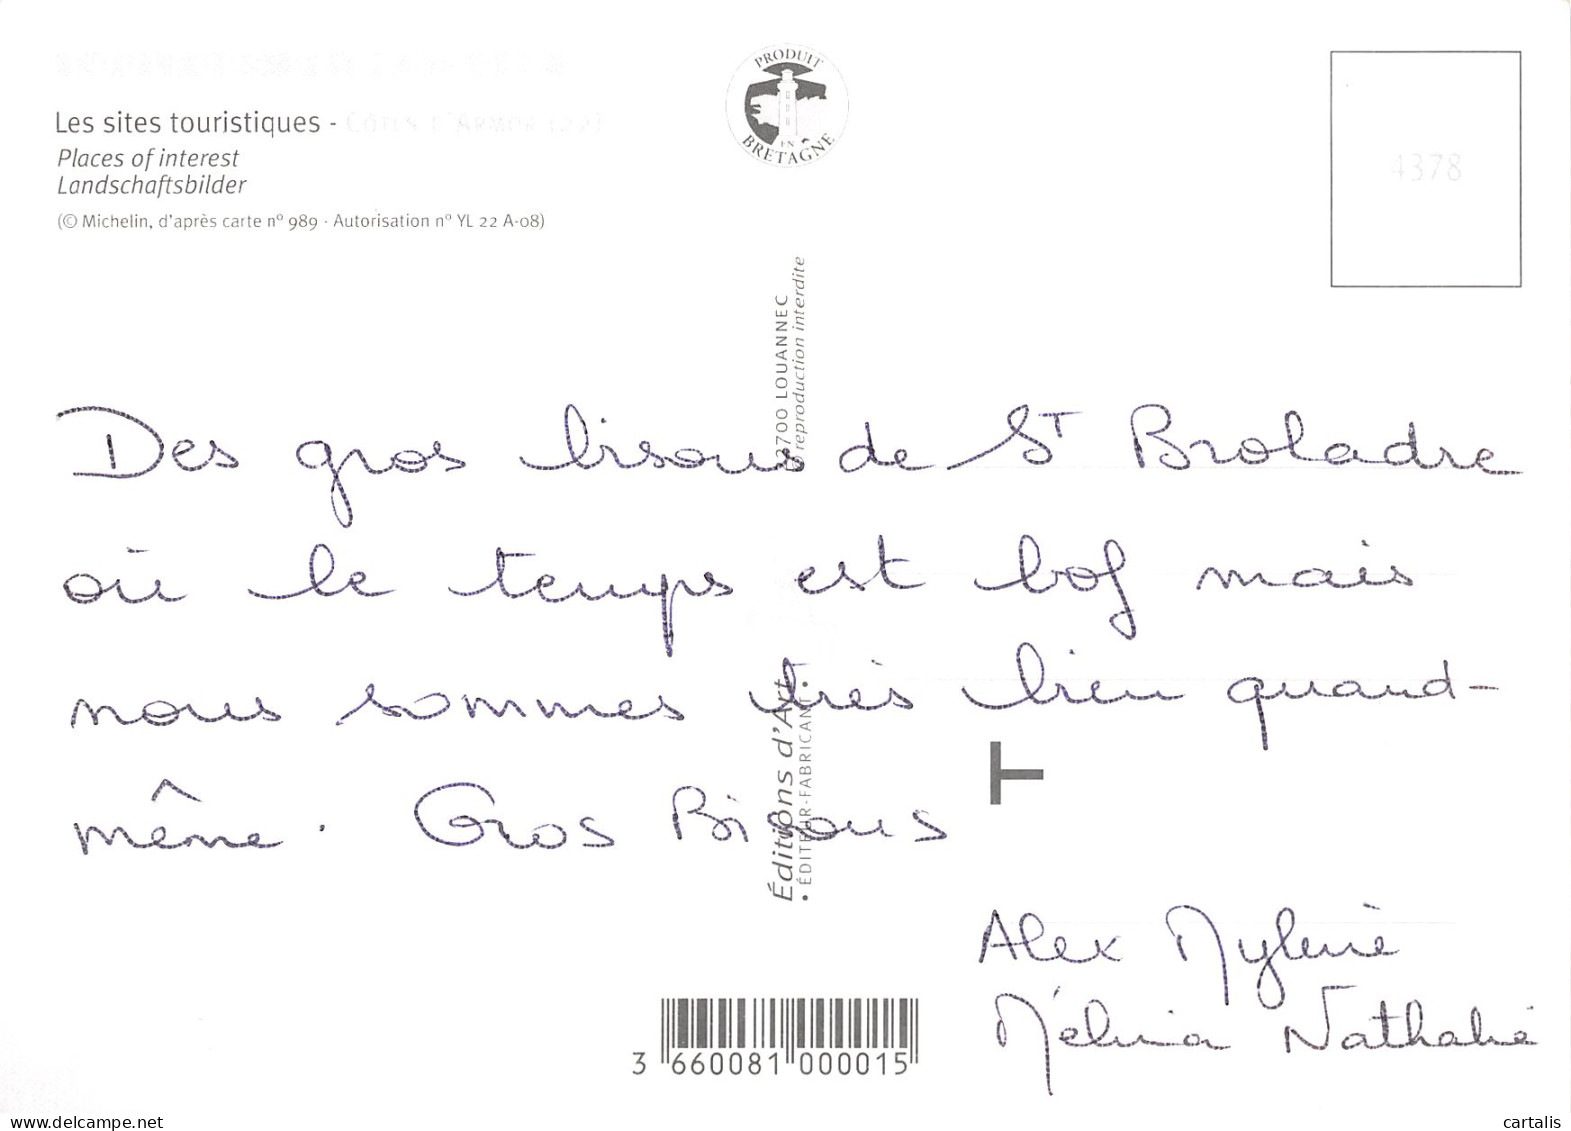 Les sites touristiques - CÔTES D'ARMOR (22)
Places of interest
Landschaftsbilder
(© Michelin, d'après carte nº 989 - Autorisation nº YL 22 A-08)
PRODUIT
EN
BRETAGNE
4378
22700 LOUANNEC
© reproduction interdite
Éditions d'Art
• ÉDITEUR-FABRICANT •
Des gros bisous de St Broladre
où le temps est bof mais
nous sommes très bien quand-
même. Gros Bisous
T
Alex Mylène
Mélina Nathalie
3 660081 000015
delcampe.net
cartalis